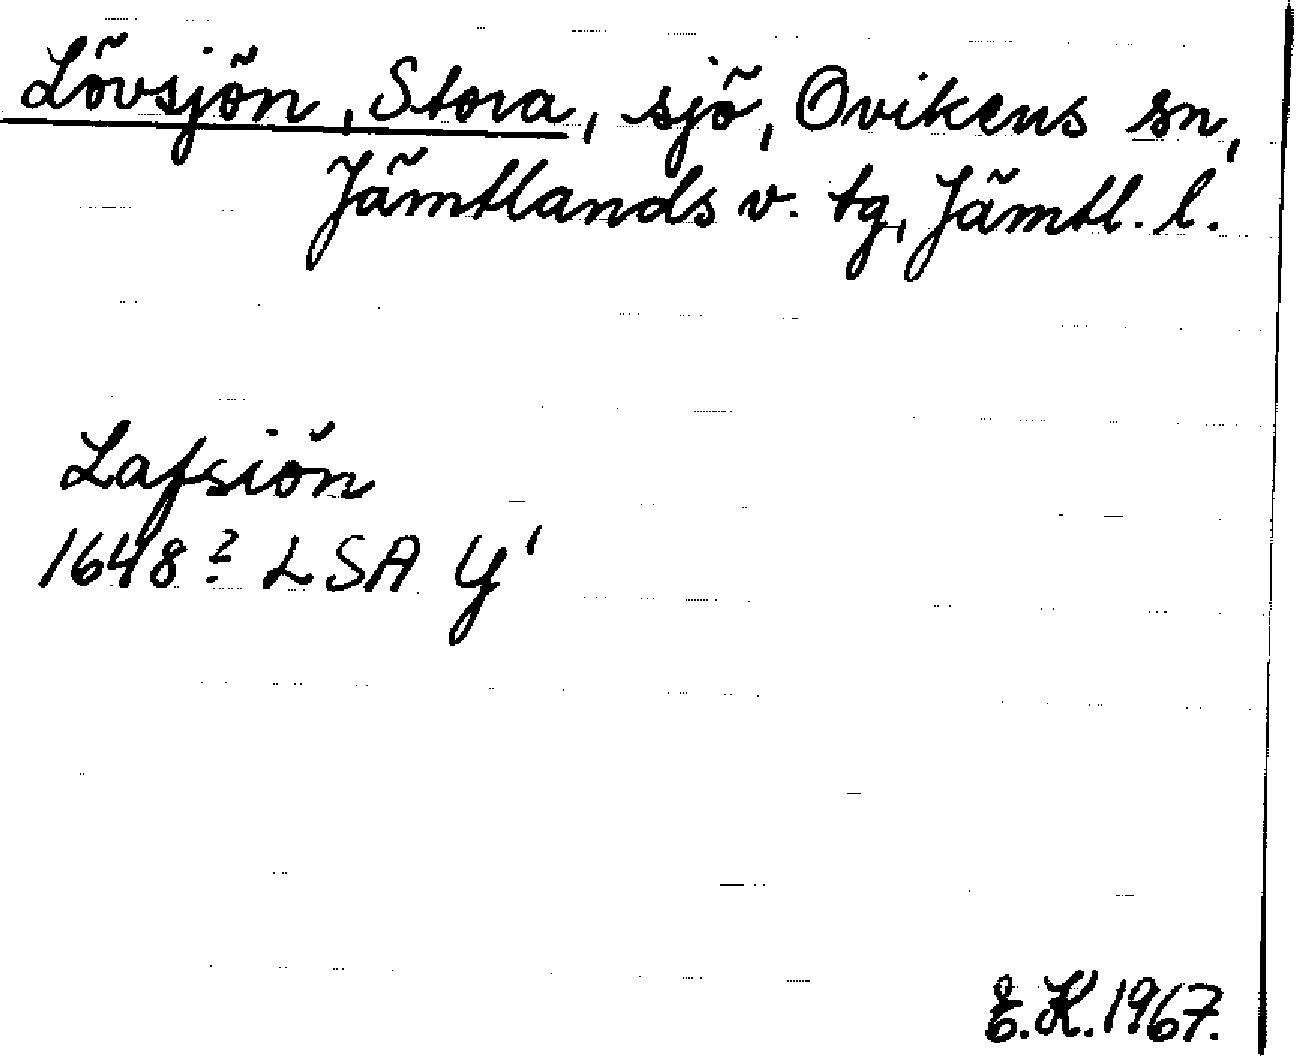 Lövsjön, Stora, sjö, Ovikens sn,
Jämtlands v. tg, Jämtl. l.
Lafsiön
1648? LSA Y'
E.K. 1967.